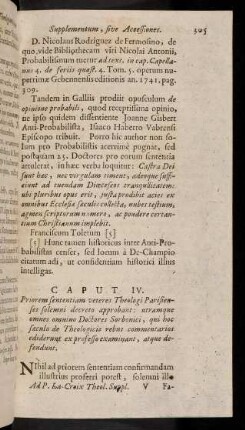 Supplementum, sive Accessiones. 305
D. Nicolaus Rodriguez de Fermosino, de
quo vide Bibliothecam viri Nicolai Antonii,
Probabilismum tuetur ad text. in cap. Capella-
nus 4. de feriis quæst. 4. Tom. 5. operum nu-
perrimæ Gebennensis editionis an. 1741. pag.
309.
Tandem in Galliis prodiit opusculum de
opinione probabili, quod receptissima opinio,
ne ipso quidem dissentiente Joanne Gisbert
Anti-Probabilista, Isaaco Huberto Vabrensi
Episcopo tribuit. Porro hic author non so-
lum pro Probabilistis acerrime pugnat, sed
postquam 25. Doctores pro eorum sententia
attulerat, in hæc verba loquitur: Castra Dei
sunt hæc, nec vulgatum timent, adeoque suffi-
ciunt ad tuendam Diœceseos tranquillitatem:
ubi pluribus opus erit, justa prodibit acies ex
omnibus Ecclesiæ sæculis collecta, nubes testium,
agmen scriptorum numero, ac pondere certan-
tium Christianum implebit.
Franciscum Toletum [5]
[5] Hunc tamen historicus inter Anti-Pro-
babilistas censet, sed locum à De-Champio
citatum adi, ut confidentiam historici illius
intelligas.
CAPUT IV.
Priorem sententiam veteres Theologi Parisien-
ses solemni decreto approbant: utramque
omnes omnino Doctores Sorbonici, qui hoc
sæculo de Theologicis rebus commentarios
ediderunt ex professo examinant, atque de-
fendunt.
Nihil ad priorem sententiam confirmandam
illustrius proferri potest, solenni illo
Ad P. La-Croix Theol. Suppl. V Fa-